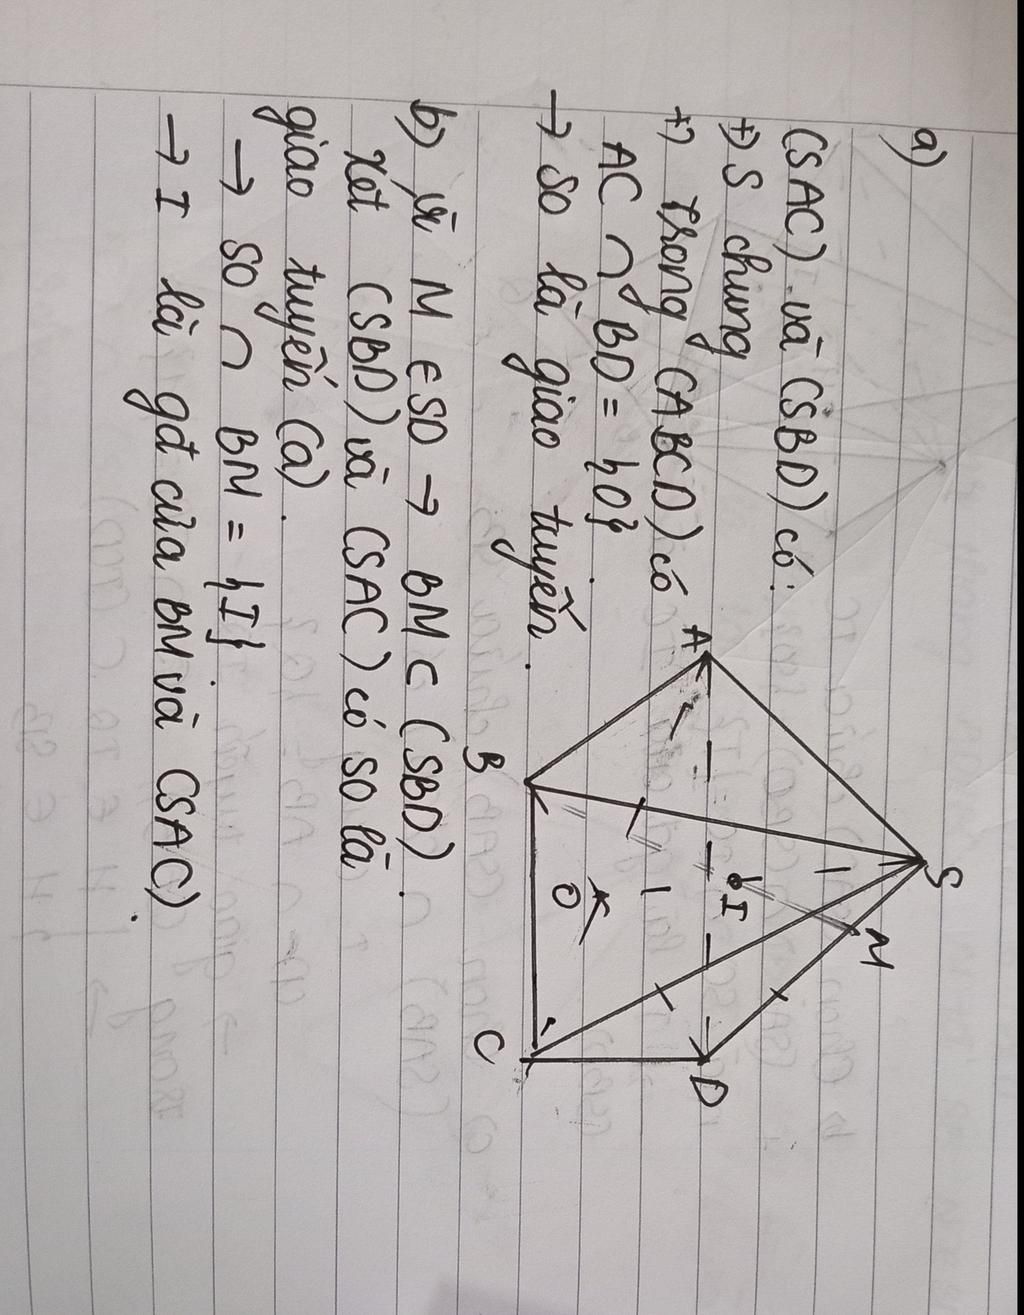 a)
(SAC) và (SBD) có:
+) S chung
+) Trong (ABCD) có
AC ∩ BD = {O}.
→ SO là giao tuyến.
b) Vì M ∈ SD → BM ⊂ (SBD).
Xét (SBD) và (SAC) có SO là
giao tuyến (a).
→ SO ∩ BM = {I}
→ I là gđ của BM và (SAC).
S
M
I
A
D
O
B
C